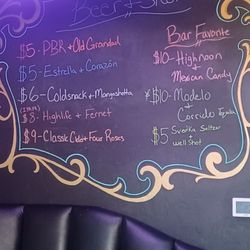 Beer + Shot
$5-PBR+Old Grandad
$5-Estrella + Corazón
$6-Coldsnack+Mangoshotta
(ITEMS)
$8-Highlife + Fernet
$9-Classic Cidr+Four Roses
Bar Favorite
$10-High noon
Mexican Candy
*$10-Modelo
+
Corrido Tequila
$5 Svenka Seltzer
+
well shot